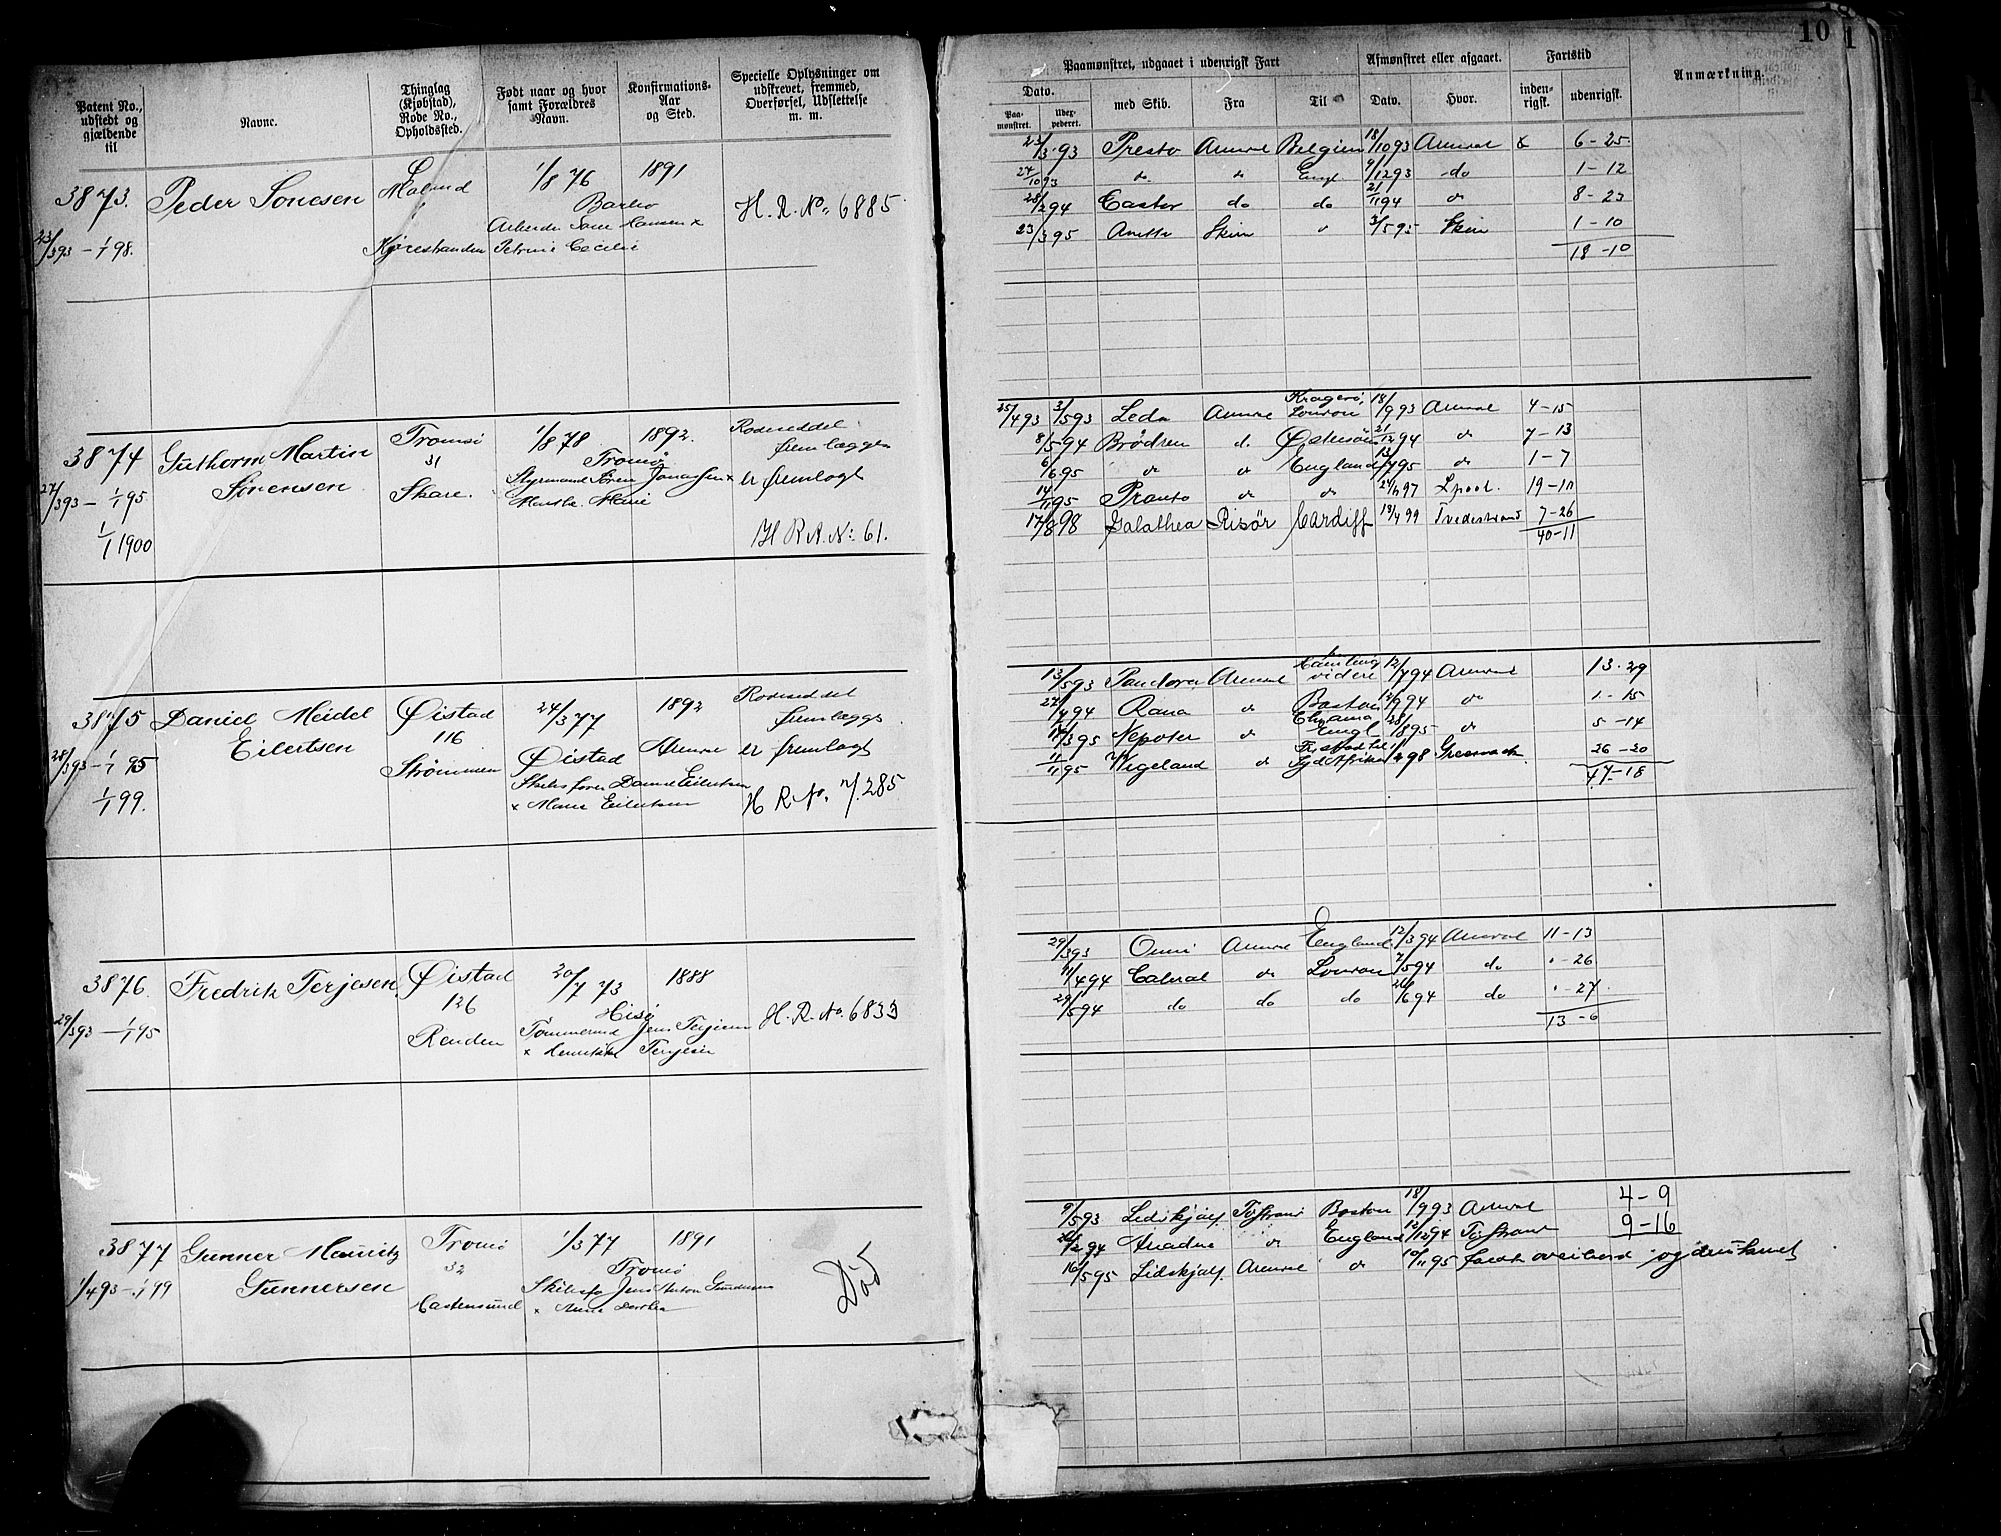 10
Patent No., udstedt og gjældende til
Navne.
Thinglag (Kjøbstad), Rode No., Opholdssted.
Født naar og hvor samt Forældres Navn.
Konfirmations-Aar og Sted.
Specielle Oplysninger om udskrevet, fremmed, Overførsel, Udslettelse m. m.
Paamønstret, udgaaet i udenrigsk Fart
Afmønstret eller afgaaet.
Fartstid
Anmærkning.
Dato.
med Skib.
Fra
Til
Dato.
Hvor.
inden-rigsk.
udenrigsk.
Paa-mønstret.
Udex-pederet.
3873.
23/3 93 – 1/1 98.
Peder Sonesen
1/8 76
Barbo
Petrine Cecilie
1891
H. R. No. 6885.
23/3 93 Presto Arendal Belgien 18/10 93 Arendal 6 - 25
27/10 93 do do Engl. 9/12 93 do 1 - 12
28/2 94 Castor do do 21/11 94 do 8 - 23
23/3 95 Anetta Skien 3/5 95 Skien 1 - 10
18 - 10
3874
27/3 93 – 1/1 95
1/1 1900
Guthorm Martin
Sørensen
Tromø
31
Skare.
1/8 78
Tromø
Styrmand Søren Jonassen x
Marie
1892.
Rodeseddel
fremlægges
er fremlagt
H R A N: 61.
25/4 93 3/5 93 Leda Arendal Kragerø, London 18/9 93 Arendal 4 - 15
8/5 94 Brødren d. Østersøen 21/12 94 do 7 - 13
6/6 95 do do England 13/7 95 do 1 - 7
14/11 95 Pronto do do 97 Lpool. 19 - 10
17/8 98 Galathea Risör Cardiff 13/4 99 Tvedestrand 7 - 26
40 - 11
3875
28/3 93 – 1/1 95
1/1 99.
Daniel Meidel
Eilertsen
Øistad
116
Strømmen
24/3 77
Øistad
Skibsfører Daniel Eilertsen
x Marie Eilertsen
1892
Arendal
Rodeseddel
fremlægges
er fremlagt
H R. No. 285
13/5 93 Pandora Arendal videre 12/7 94 Arendal 13 - 29
27/7 94 Rana do Boston 12/9 94 do 1 - 15
3 95 Nepoter do Engl 8 95 do 5 - 14
11/11 95 Vigeland do Syd Afrika 98 Greenock 26 - 20
47 - 18
3876.
29/3 93 – 1/1 95
Fredrik Terjesen.
Øistad
126
Renden
20/7 73
Hisø
Tømmermd Jens Terjesen
x Terjesen
1888
H. R. No. 6833
29/3 93 Omni Arendal England 12/3 94 Arendal 11 - 13
11/4 94 Calmal do London 7/5 94 do " - 26
29/5 94 do do do 6 94 do " - 27
13 - 6
3877
1/4 93 – 1/1 99
Gunner Mauritz
Gunnersen
Tromø
32
Hastensund
1/3 77
Tromø
Skibsfø Jens Anton Gundersen
x Anne Dorthea
1891
Død
9/5 93 Lidskjalf. Tvstrand Boston 18/9 93 Arendal 4 - 9
2 94 Ariadne do England 12/12 94 Tvstrand 9 - 16
16/5 95 Lidskjalf. Arendal do 10/11 95 faldt overbord og druknet